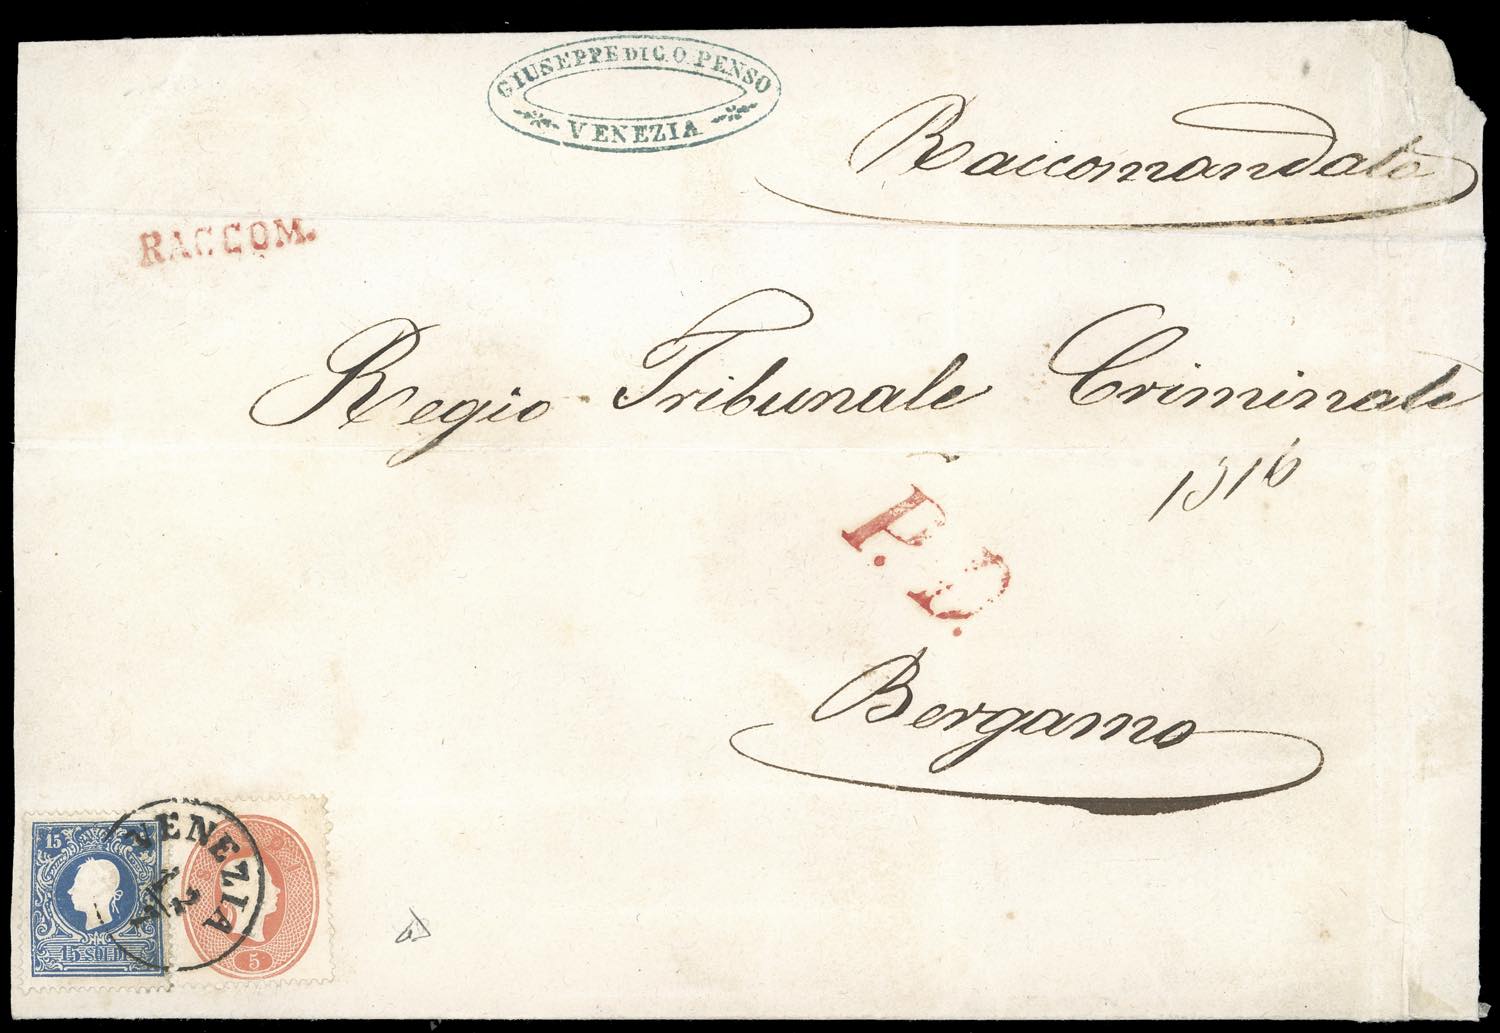 GIUSEPPE DI G. O. PENSO
VENEZIA
Raccomandata
RACCOM.
Regio Tribunale Criminale
P.D.
Bergamo
15
15 SOLDI
VENEZIA
5